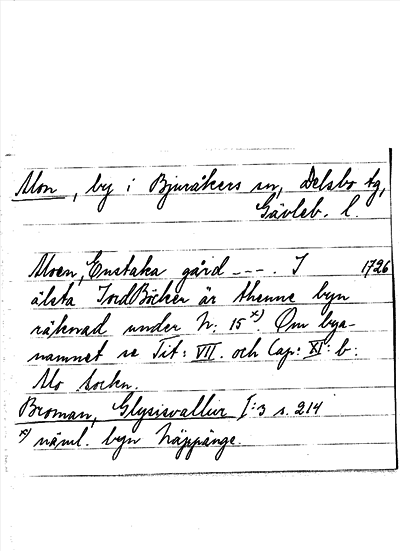 Mon, by i Bjuråkers sn, Delsbo tg,
Gävleb. l.
Moen, Enstaka gård ---. I 1726
älsta JordBöcker är thenne byn
räknad under N: 15 x). Om bya-
namnet se Tit: VII. och Cap: XI: b:
Mo sockn.
Broman, Glysisvallur I:3 s. 214
x) näml. byn Näppänge.